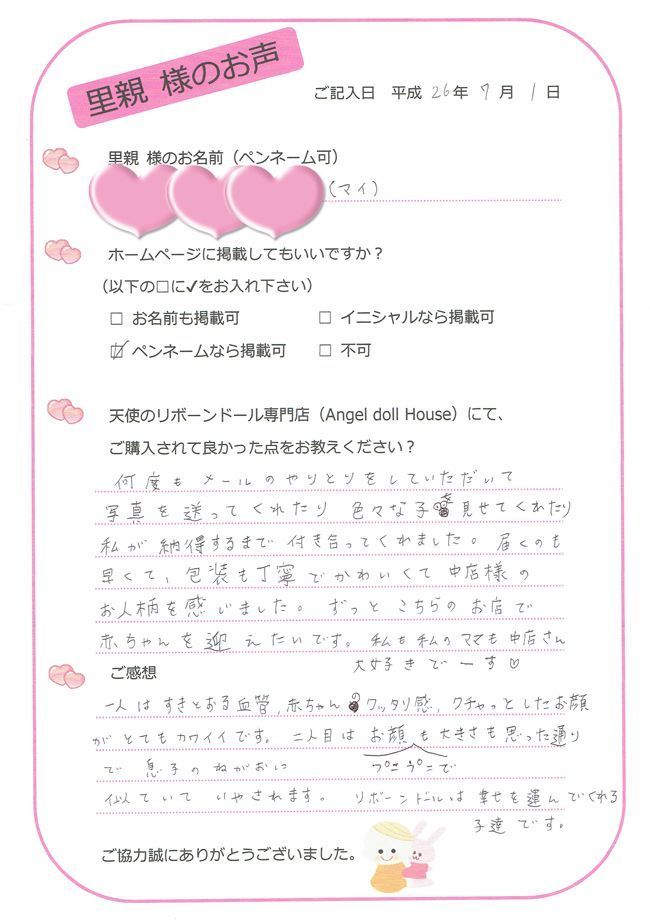 里親 様のお声
ご記入日 平成 26年 7月 1日
里親 様のお名前（ペンネーム可）
（マイ）
ホームページに掲載してもいいですか？
（以下の□に✓をお入れ下さい）
□ お名前も掲載可 □ イニシャルなら掲載可
☑ ペンネームなら掲載可 □ 不可
天使のリボーンドール専門店（Angel doll House）にて、
ご購入されて良かった点をお教えください？
何度もメールのやりとりをしていただいて
写真を送ってくれたり 色々な子を見せてくれたり
私が納得するまで付き合ってくれました。届くのも
早くて、包装も丁寧でかわいくて中店様の
お人柄を感いました。ずっとこちらのお店で
赤ちゃんを迎えたいです。私も私のママも中店さん
大好きでーす♡
ご感想
一人はすきとおる血管,赤ちゃんのクッタリ感,クチャっとしたお顔
がとてもカワイイです。二人目はお顔も大きさも思った通り
で 息子のねがおに プニプニで
似ていて いやされます。 リボーンドールは幸せを運んでくれる
子達です。
ご協力誠にありがとうございました。